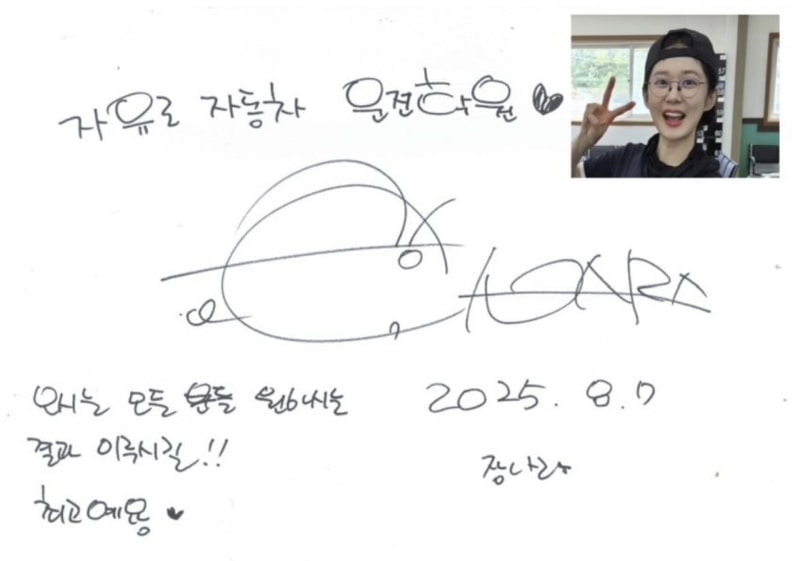 자유로 자동차 운전학원
NARA
오시는 모든 분들 원하시는
결과 이루시길!!
최고예용
2025. 8. 7
장나라